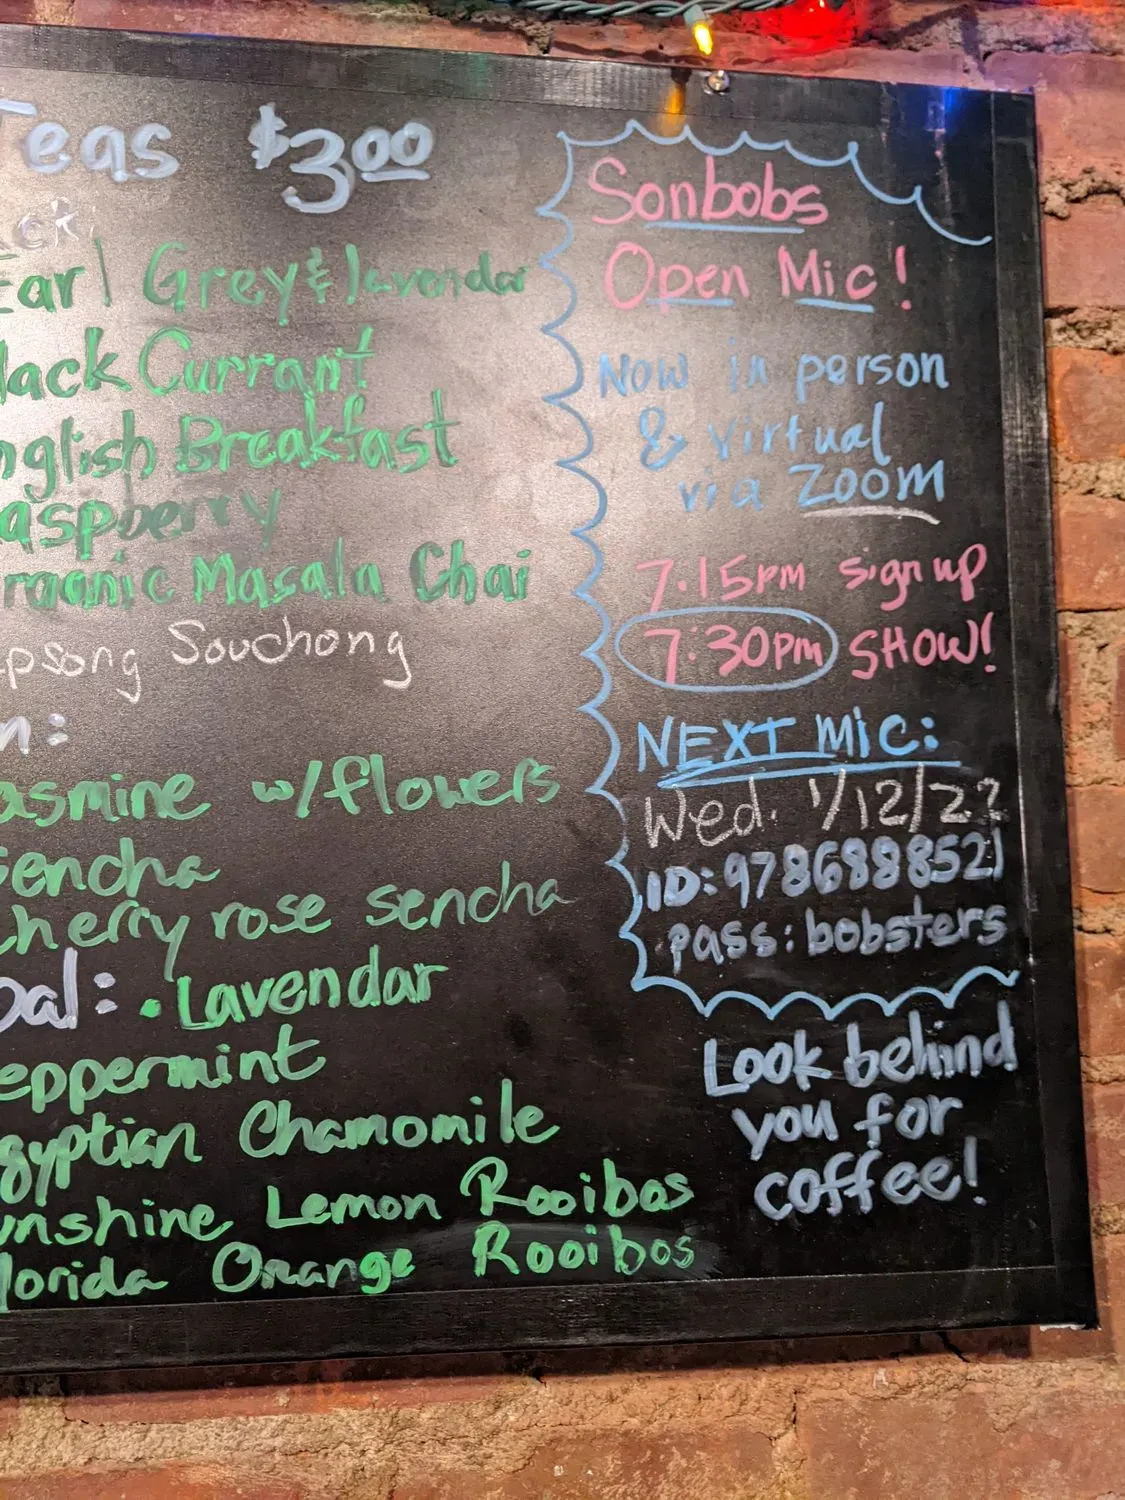 Teas $3.00
Earl Grey & lavender
lack Currant
nglish Breakfast
aspberry
rganic Masala Chai
apsong Souchong
n:
asmine w/flowers
Sencha
Cherry rose sencha
bal: • Lavendar
eppermint
gyptian Chamomile
unshine Lemon Rooibos
lorida Orange Rooibos
Sonbobs
Open Mic!
Now in person
& virtual
via Zoom
7:15pm sign up
7:30pm SHOW!
NEXT MIC:
Wed. 1/12/22
ID: 9786888521
Pass: bobsters
Look behind
you for
coffee!